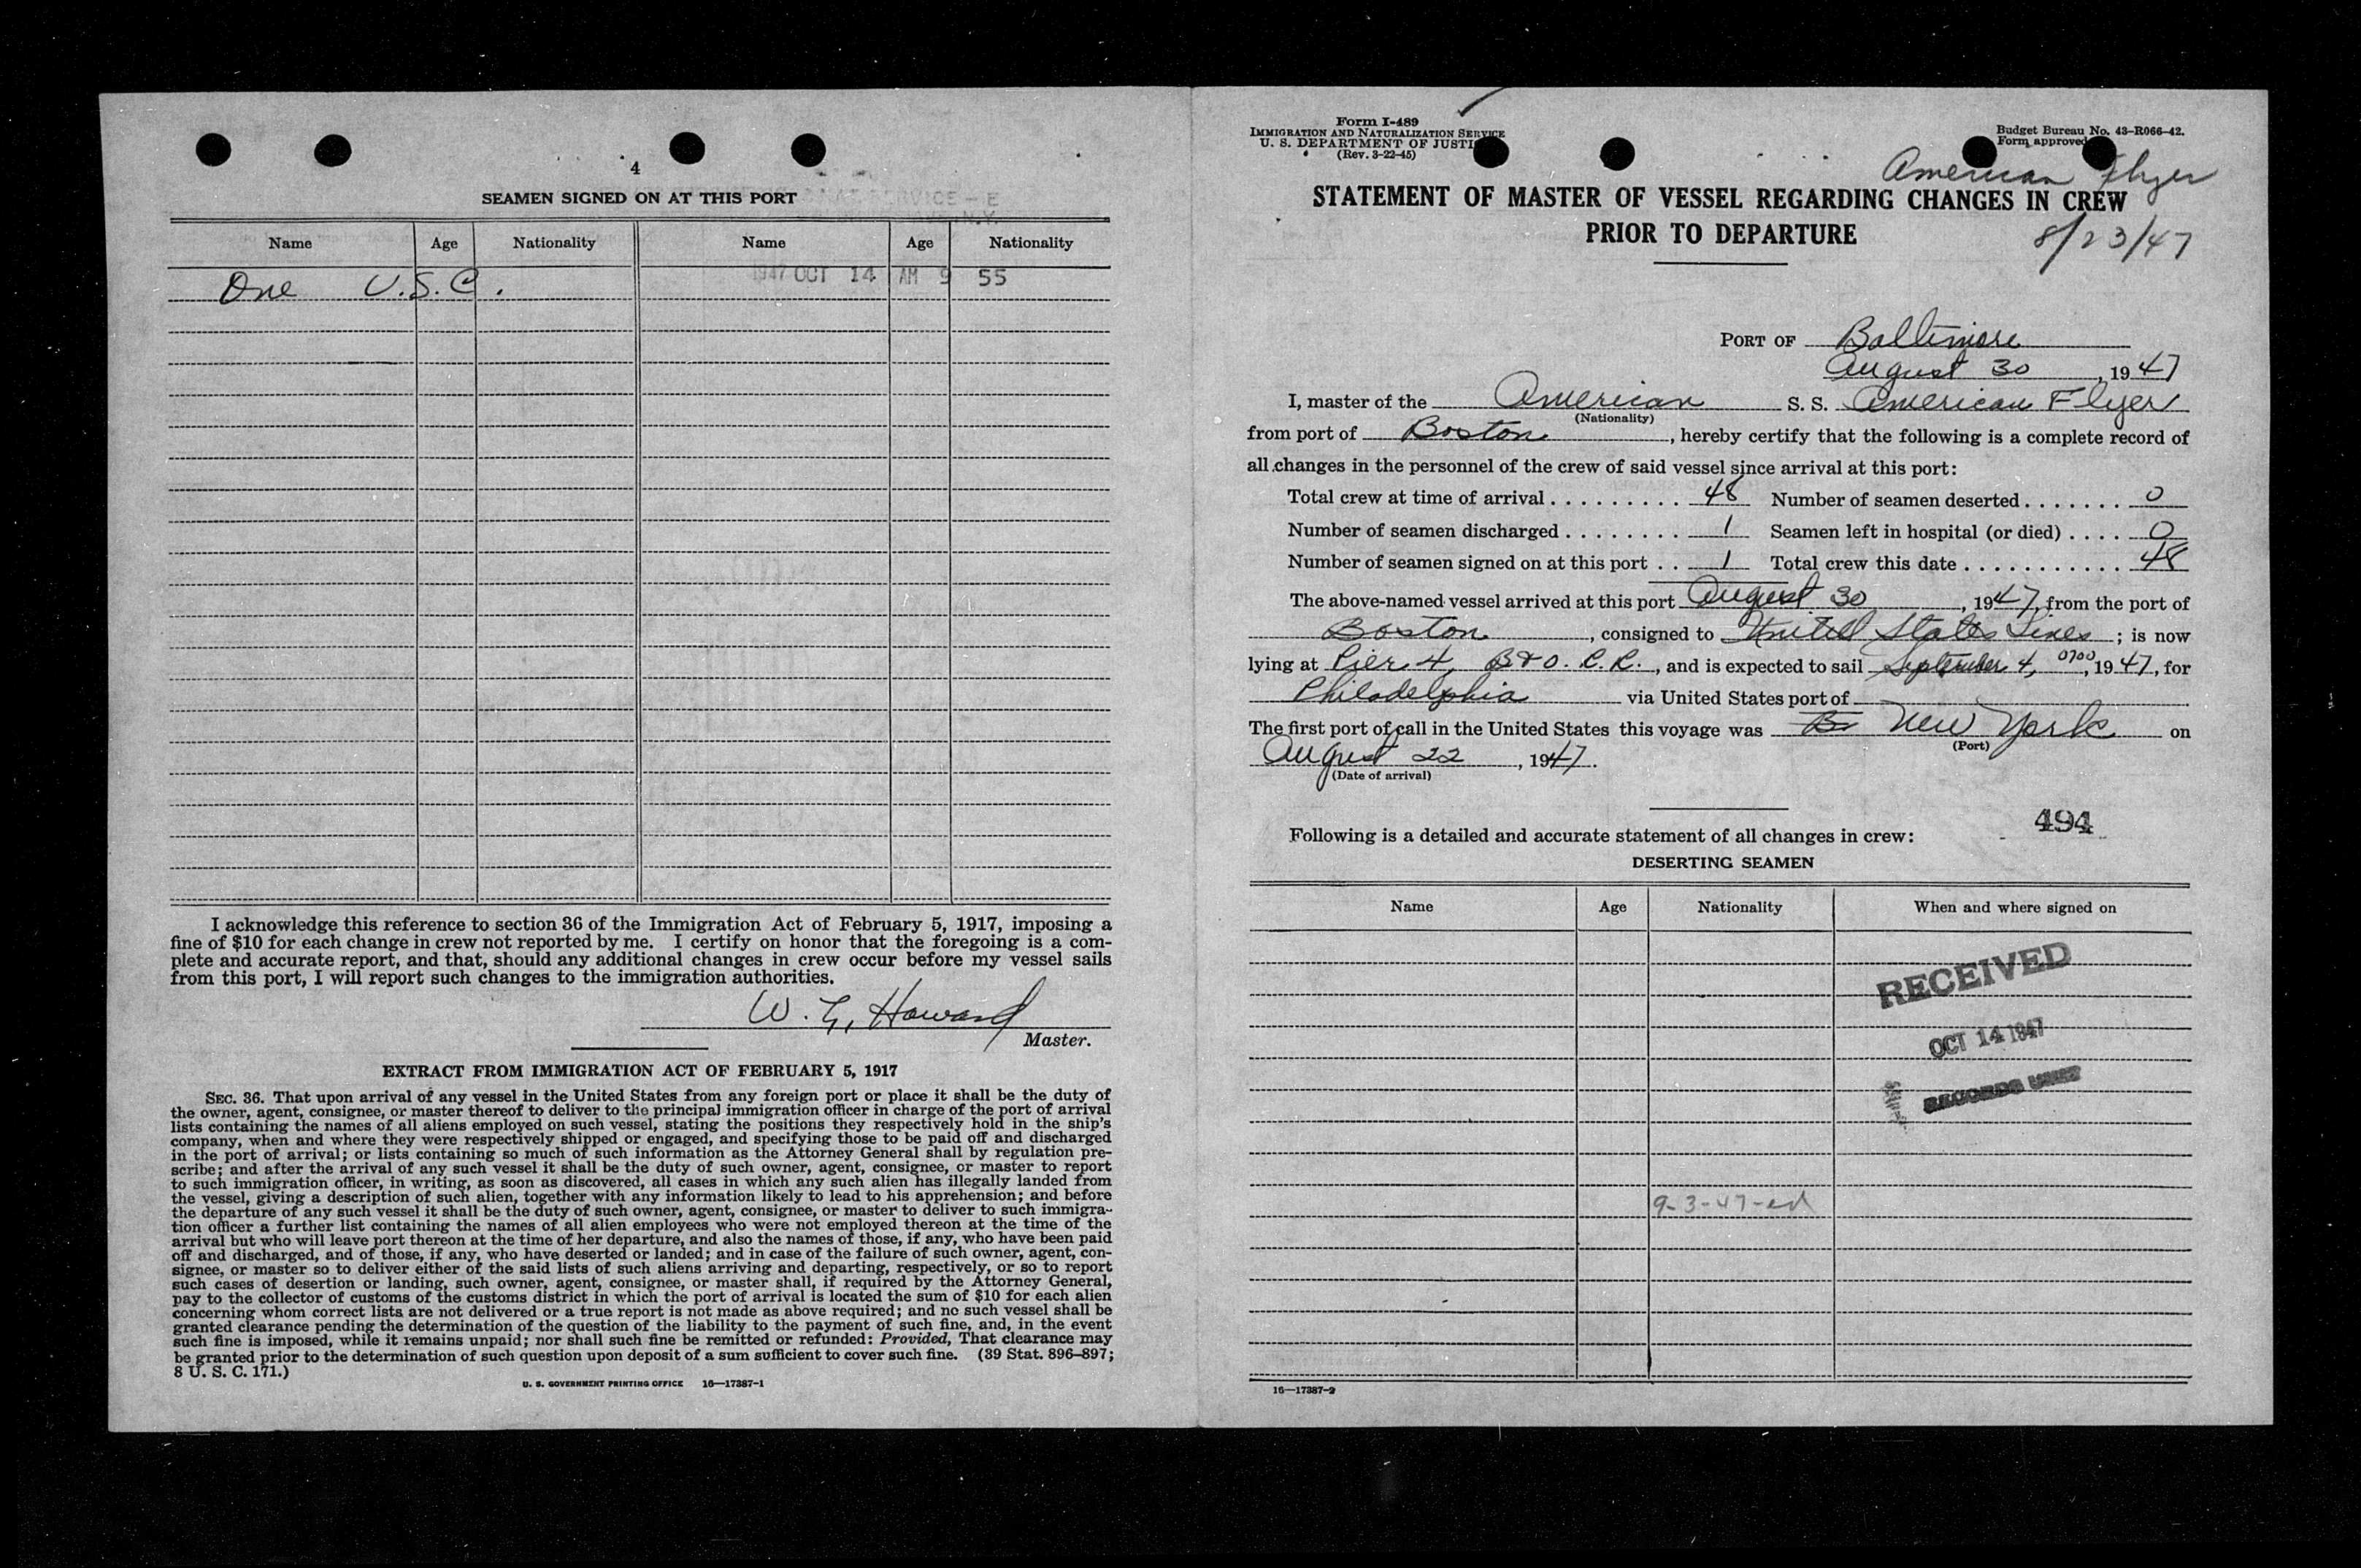 4
SEAMEN SIGNED ON AT THIS PORT
Name Age Nationality Name Age Nationality
1947 OCT 14 AM 9 55
One U.S.C.
I acknowledge this reference to section 36 of the Immigration Act of February 5, 1917, imposing a
fine of $10 for each change in crew not reported by me. I certify on honor that the foregoing is a com-
plete and accurate report, and that, should any additional changes in crew occur before my vessel sails
from this port, I will report such changes to the immigration authorities.
W. G. Howard
Master.
EXTRACT FROM IMMIGRATION ACT OF FEBRUARY 5, 1917
SEC. 36. That upon arrival of any vessel in the United States from any foreign port or place it shall be the duty of
the owner, agent, consignee, or master thereof to deliver to the principal immigration officer in charge of the port of arrival
lists containing the names of all aliens employed on such vessel, stating the positions they respectively hold in the ship's
company, when and where they were respectively shipped or engaged, and specifying those to be paid off and discharged
in the port of arrival; or lists containing so much of such information as the Attorney General shall by regulation pre-
scribe; and after the arrival of any such vessel it shall be the duty of such owner, agent, consignee, or master to report
to such immigration officer, in writing, as soon as discovered, all cases in which any such alien has illegally landed from
the vessel, giving a description of such alien, together with any information likely to lead to his apprehension; and before
the departure of any such vessel it shall be the duty of such owner, agent, consignee, or master to deliver to such immigra-
tion officer a further list containing the names of all alien employees who were not employed thereon at the time of the
arrival but who will leave port thereon at the time of her departure, and also the names of those, if any, who have been paid
off and discharged, and of those, if any, who have deserted or landed; and in case of the failure of such owner, agent, con-
signee, or master so to deliver either of the said lists of such aliens arriving and departing, respectively, or so to report
such cases of desertion or landing, such owner, agent, consignee, or master shall, if required by the Attorney General,
pay to the collector of customs of the customs district in which the port of arrival is located the sum of $10 for each alien
concerning whom correct lists are not delivered or a true report is not made as above required; and no such vessel shall be
granted clearance pending the determination of the question of the liability to the payment of such fine, and, in the event
such fine is imposed, while it remains unpaid; nor shall such fine be remitted or refunded: Provided, That clearance may
be granted prior to the determination of such question upon deposit of a sum sufficient to cover such fine. (39 Stat. 896–897;
8 U. S. C. 171.)
U. S. GOVERNMENT PRINTING OFFICE 16—17387-1
Form I-489
IMMIGRATION AND NATURALIZATION SERVICE
U. S. DEPARTMENT OF JUSTI
(Rev. 3-22-45)
Budget Bureau No. 43-R066-42.
Form approved
American Flyer
STATEMENT OF MASTER OF VESSEL REGARDING CHANGES IN CREW
PRIOR TO DEPARTURE
8/23/47
PORT OF Baltimore
August 30, 1947
I, master of the American S. S. American Flyer
(Nationality)
from port of Boston, hereby certify that the following is a complete record of
all changes in the personnel of the crew of said vessel since arrival at this port:
Total crew at time of arrival . . . . . . . . . . 48 Number of seamen deserted . . . . . . . 0
Number of seamen discharged . . . . . . . . 1 Seamen left in hospital (or died) . . . . 0
Number of seamen signed on at this port . . 1 Total crew this date . . . . . . . . . . . 48
The above-named vessel arrived at this port August 30, 1947, from the port of
Boston, consigned to United States Lines; is now
lying at Pier 4, B & O. R.R., and is expected to sail September 4, 0700, 1947, for
Philadelphia via United States port of
The first port of call in the United States this voyage was Bo New York on
(Port)
August 22, 1947.
(Date of arrival)
494
Following is a detailed and accurate statement of all changes in crew:
DESERTING SEAMEN
Name Age Nationality When and where signed on
RECEIVED
OCT 14 1947
RECORDS UNIT
9-3-47-ed
16—17387-2